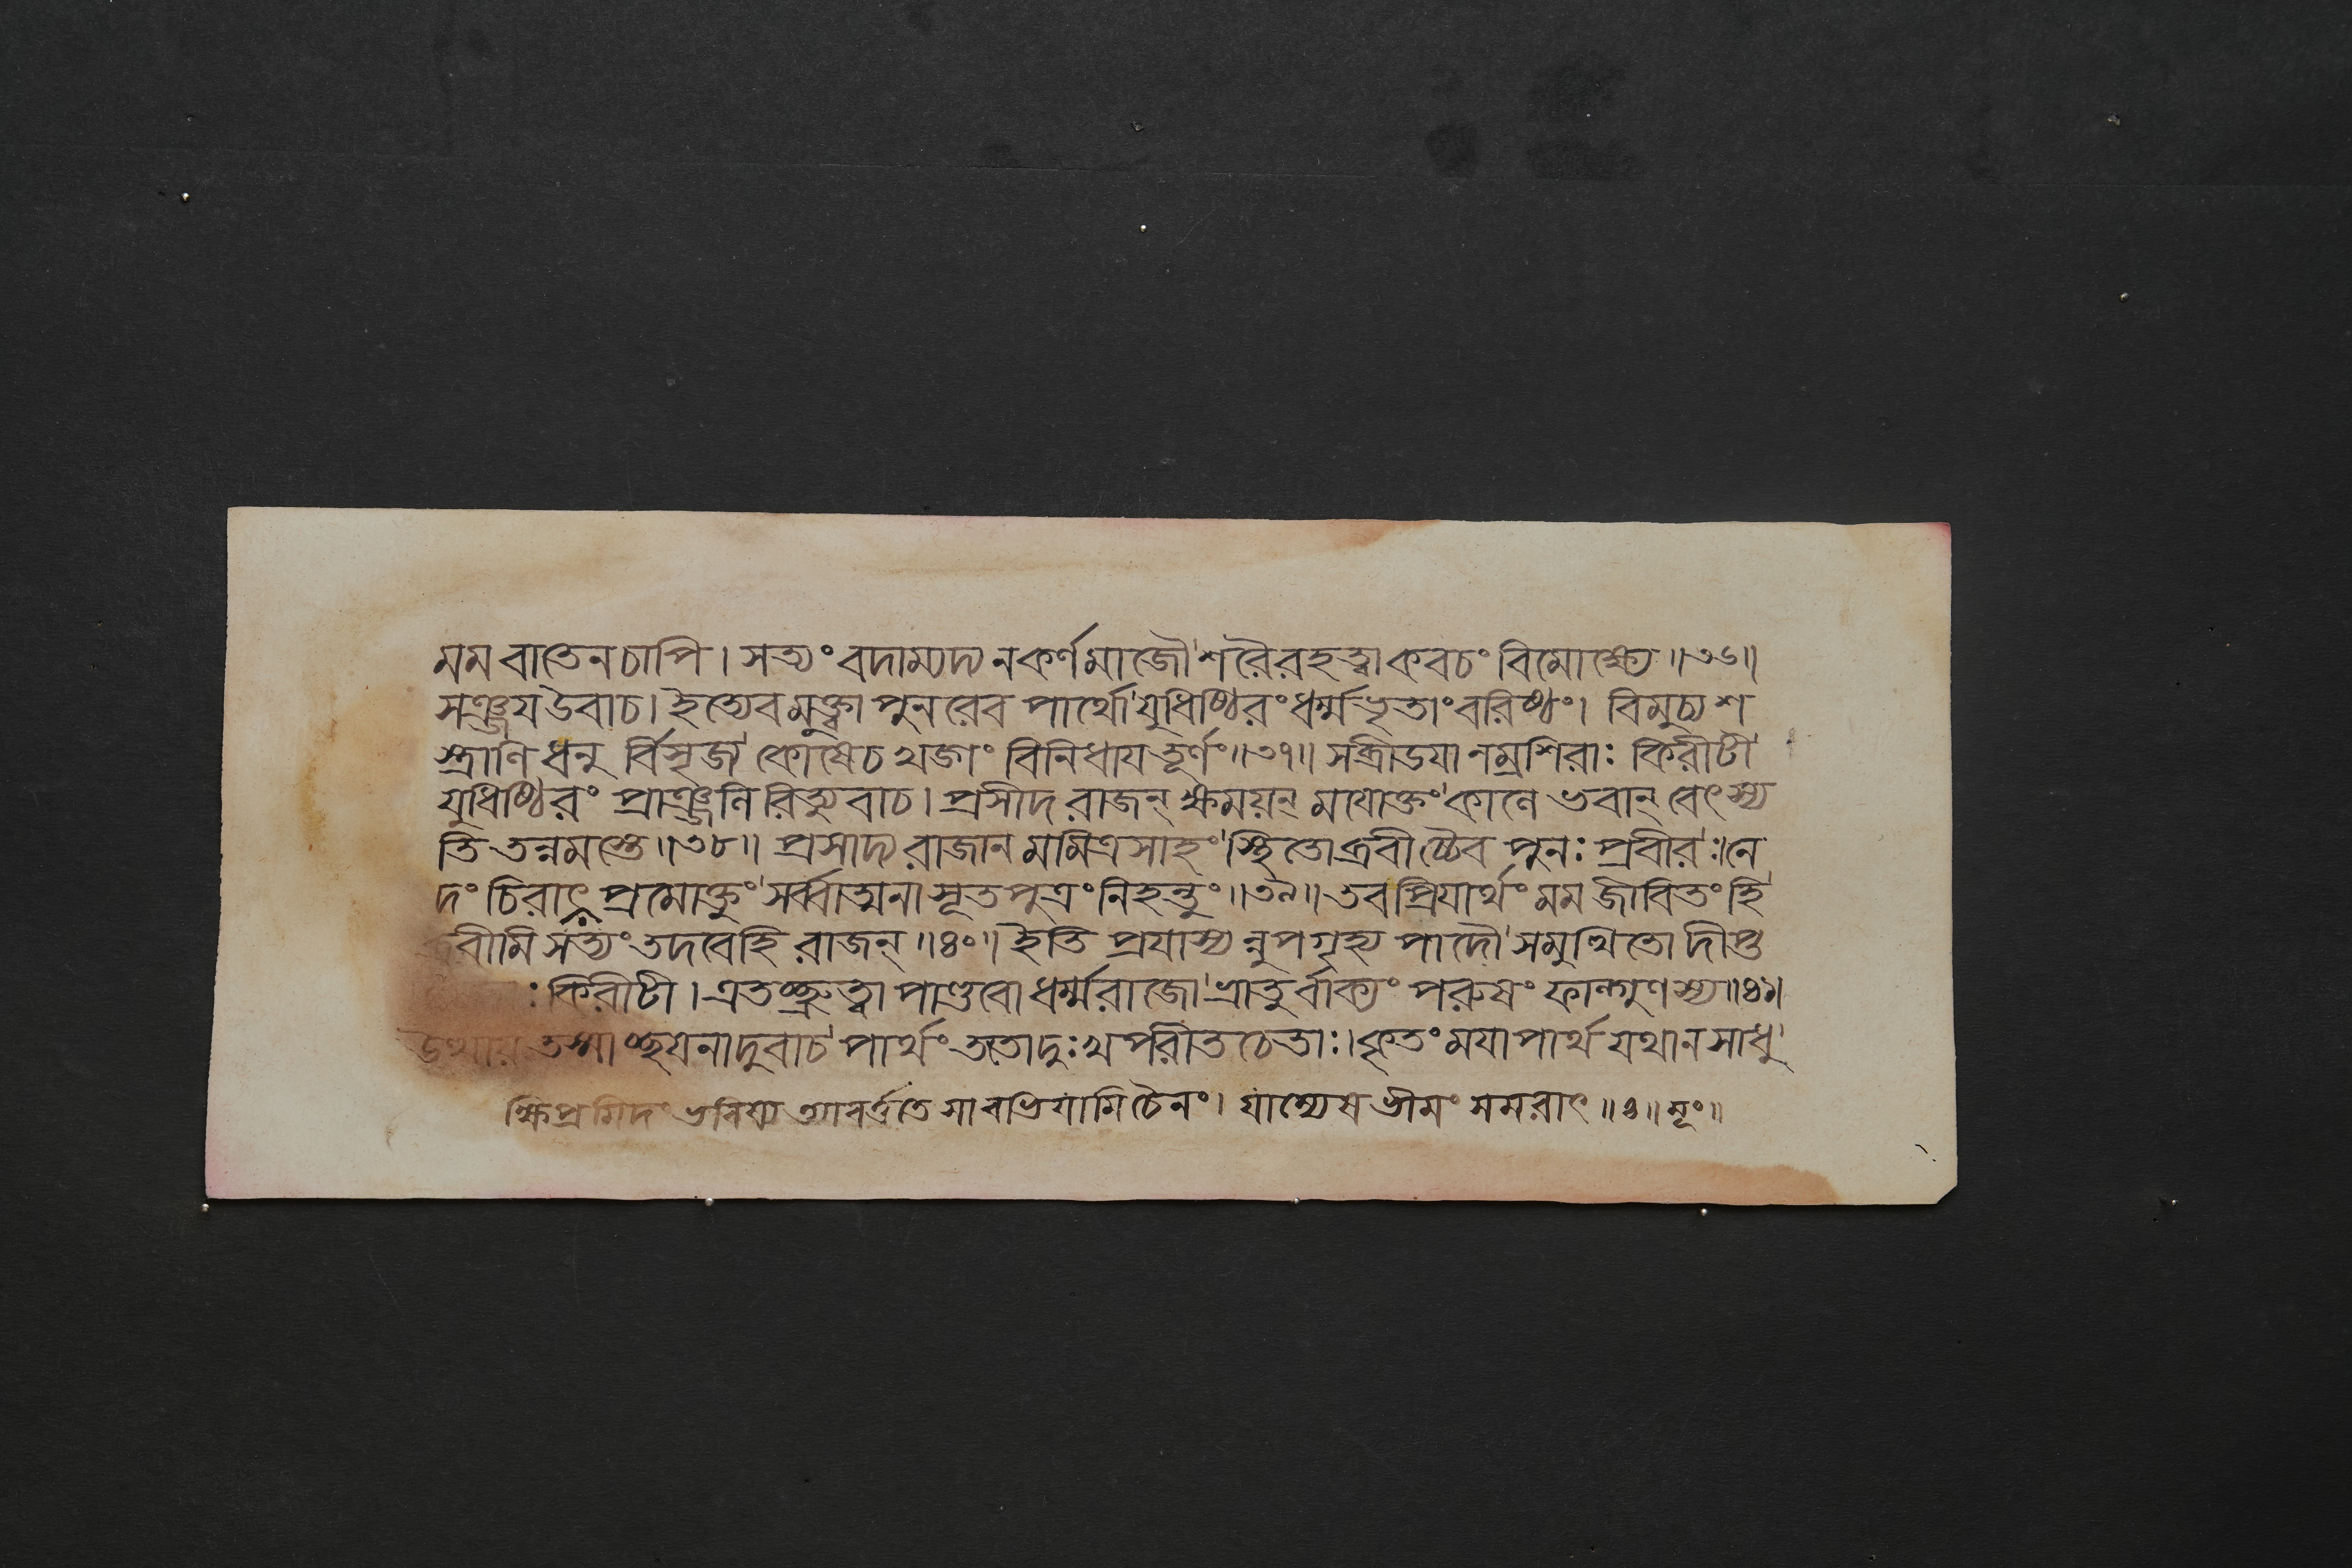 মম বাতেন চাপি । সত্যং বদাম্যদ্য ন কর্ণমাজৌ শরৈরহত্বা কবচং বিমোক্ষ্যে ॥৩৬॥
সঞ্জয উবাচ । ইত্যেবমুক্ত্বা পুনরেব পার্থো যুধিষ্ঠিরং ধর্ম্মভৃতাং বরিষ্ঠং । বিমুচ্য শ
স্ত্রাণি ধনু র্বিসৃজ্য কোষে চ খড্গং বিনিধায তূর্ণং ॥৩৭॥ স ব্রীডযা নম্রশিরাঃ কিরীটী
যুধিষ্ঠিরং প্রাঞ্জলি রিত্যুবাচ । প্রসীদ রাজন্ ক্ষময়ন্ ময়োক্তং কালে ভবান্ বেৎস্য
তি তন্নমস্তে ॥৩৮॥ প্রসাদ্য রাজানমমিত্রসাহং স্থিতো ব্রবীচ্চৈব পুনঃ প্রবীরঃ । নে
দং চিরাৎ প্রমোক্তুং সর্ব্বাত্মনা সূতপুত্রং নিহন্তুং ॥৩৯॥ তব প্রিযার্থং মম জীবিতং হি
ব্রবীমি সত্যং তদবেহি রাজন্ ॥৪০॥ ইতি প্রযাস্যন্নুপগৃহ্য পাদৌ সমুত্থিতো দীপ্ত
ঃ কিরীটী । এতচ্ছ্রুত্বা পাণ্ডবো ধর্ম্মরাজো ভ্রাতুর্বাক্যং পরুষং ফাল্গুণস্য ॥৪১॥
উত্থায তস্মাচ্ছযনাদুবাচ পার্থং ততো দুঃখপরীতচেতাঃ । কৃতং মযা পার্থ যথা ন সাধু
ক্ষিপ্রমিদং ভবিষ্য ত্যাবর্ত্ততে সাবভিযামি চৈনং । যাম্যেষ ভীমং সমরাৎ ॥৪॥ মূং ॥